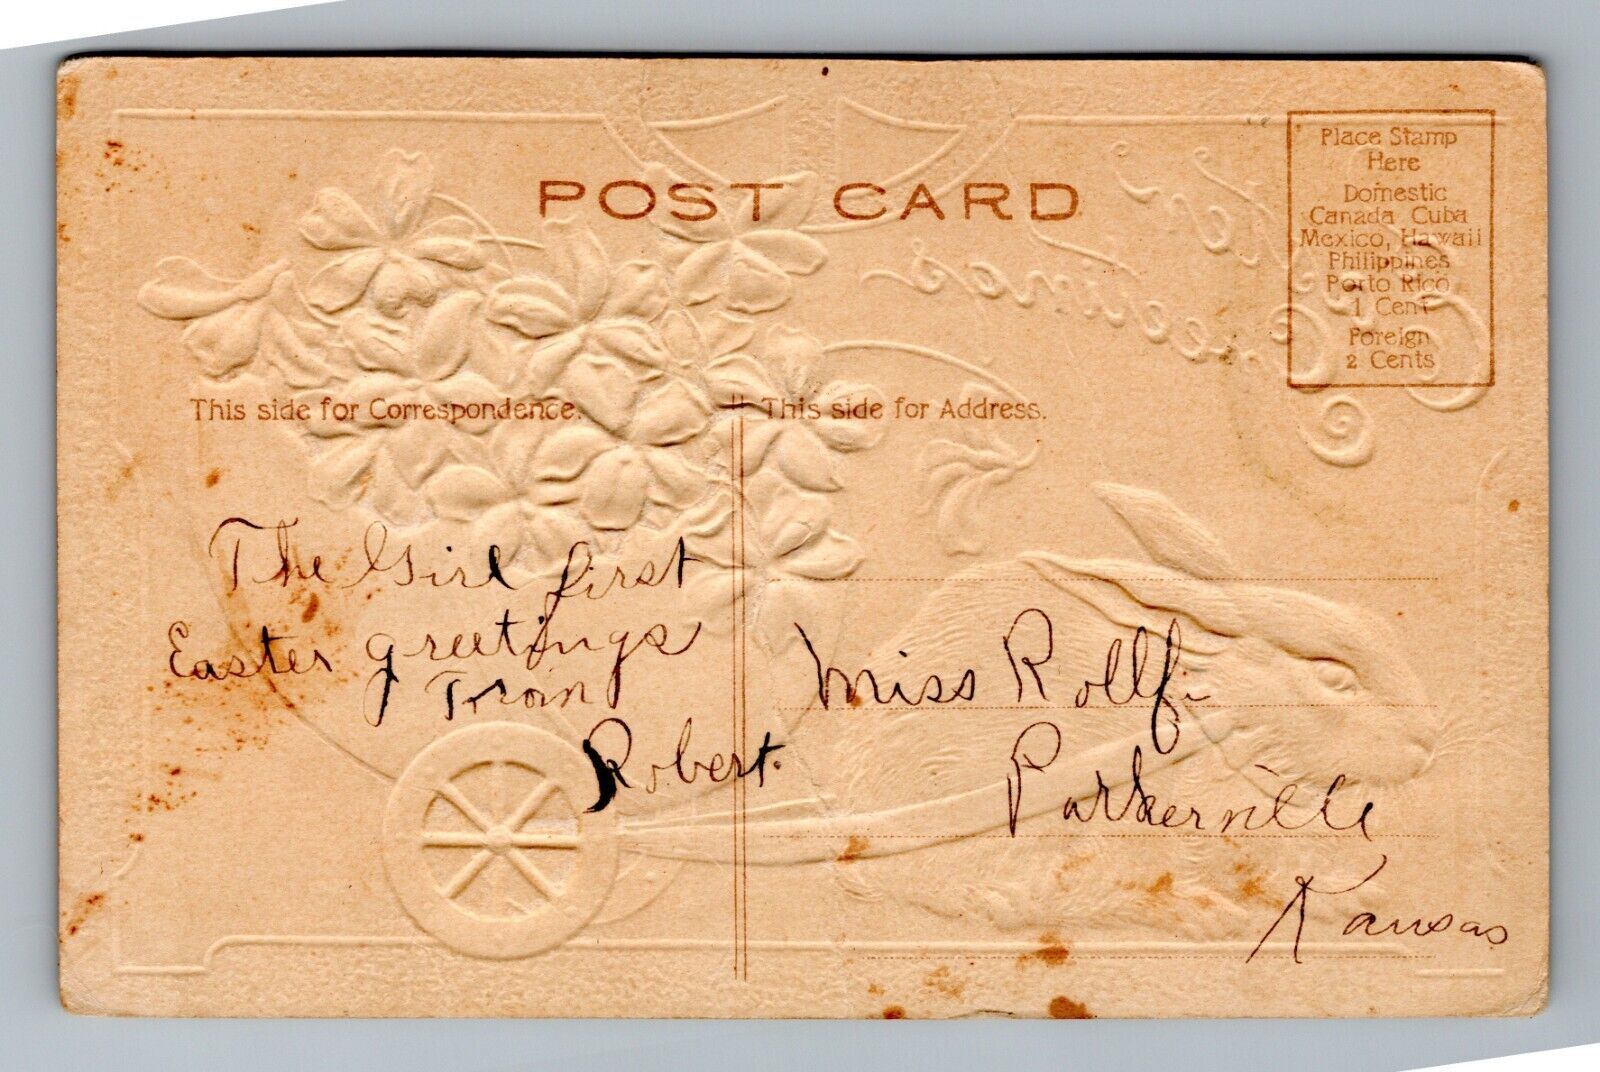 POST CARD
Place Stamp
Here
Domestic
Canada Cuba
Mexico, Hawaii
Philippines
Porto Rico
1 Cent
Foreign
2 Cents
Easter
Greetings
This side for Correspondence.
This side for Address.
The Girl first
Easter greetings
From
Robert.
Miss Rollf
Parkerville
Kansas